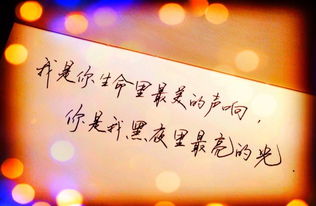 我是你生命里最美的声响，
你是我黑夜里最亮的光.